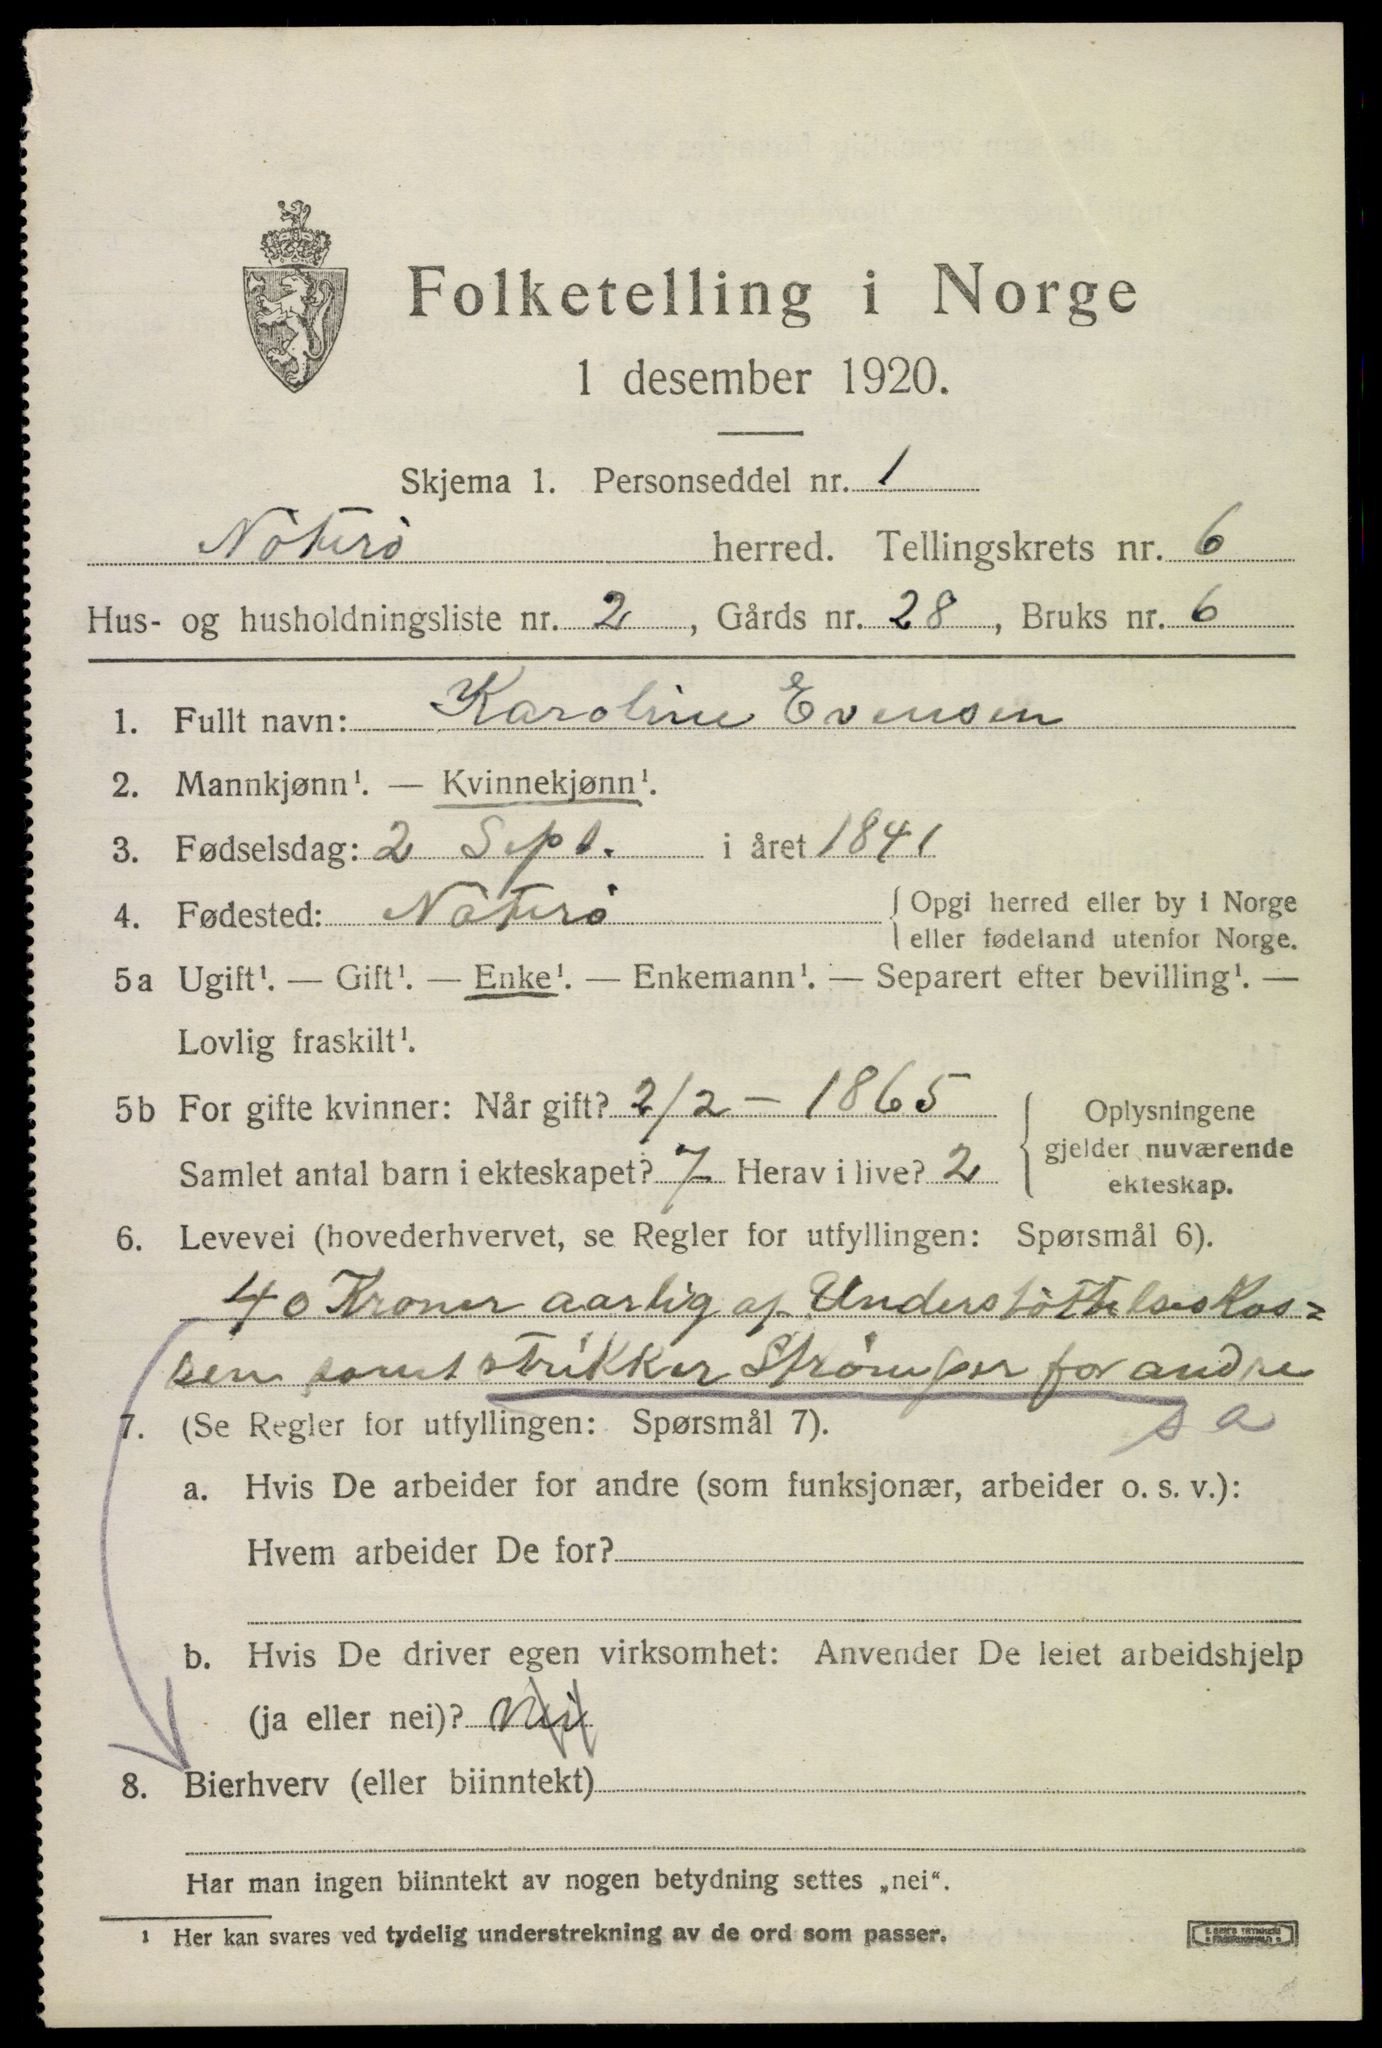 Folketelling i Norge
1 desember 1920.
Skjema 1. Personseddel nr. 1
Nøterø herred. Tellingskrets nr. 6
Hus- og husholdningsliste nr. 2, Gårds nr. 28, Bruks nr. 6
1. Fullt navn: Karoline Evensen
2. Mannkjønn¹. — Kvinnekjønn¹.
3. Fødselsdag: 2 Sept. i året 1841
4. Fødested: Nøterø { Opgi herred eller by i Norge
eller fødeland utenfor Norge.
5a Ugift¹. — Gift¹. — Enke¹. — Enkemann¹. — Separert efter bevilling¹. —
Lovlig fraskilt¹.
5b For gifte kvinner: Når gift? 2/2 — 1865
Samlet antal barn i ekteskapet? 7 Herav i live? 2
{ Oplysningene
gjelder nuværende
ekteskap.
6. Levevei (hovederhvervet, se Regler for utfyllingen: Spørsmål 6).
40 Kroner aarlig af UnderstøttelsesKas=
sen samt strikker Strømper for andre
s a
7. (Se Regler for utfyllingen: Spørsmål 7).
a. Hvis De arbeider for andre (som funksjonær, arbeider o. s. v.):
Hvem arbeider De for?
b. Hvis De driver egen virksomhet: Anvender De leiet arbeidshjelp
(ja eller nei)? Nei
8. Bierhverv (eller biinntekt)
Har man ingen biinntekt av nogen betydning settes „nei“.
¹ Her kan svares ved tydelig understrekning av de ord som passer.